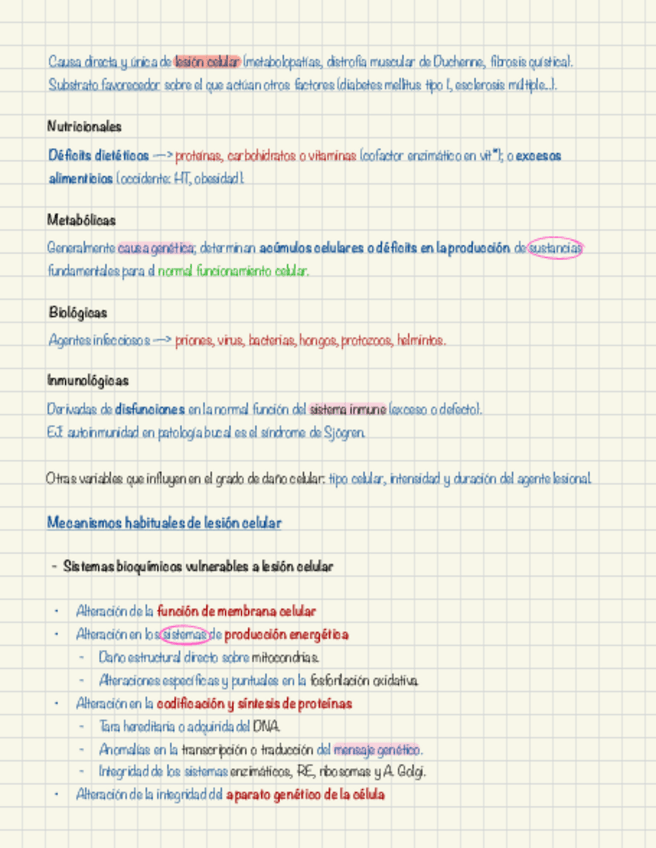 Causa directa y única de lesión celular (metabolopatías, distrofia muscular de Duchenne, fibrosis quística).
Substrato favorecedor sobre el que actúan otros factores (diabetes mellitus tipo I, esclerosis múltiple...).
Nutricionales
Déficits dietéticos —> proteínas, carbohidratos o vitaminas (cofactor enzimático en vit*); o excesos
alimenticios (occidente: HT, obesidad).
Metabólicas
Generalmente causa genética; determinan acúmulos celulares o déficits en la producción de sustancias
fundamentales para el normal funcionamiento celular.
Biológicas
Agentes infecciosos —> priones, virus, bacterias, hongos, protozoos, helmintos.
Inmunológicas
Derivadas de disfunciones en la normal función del sistema inmune (exceso o defecto).
EJ: autoinmunidad en patología bucal es el síndrome de Sjögren.
Otras variables que influyen en el grado de daño celular: tipo celular, intensidad y duración del agente lesional.
Mecanismos habituales de lesión celular
- Sistemas bioquímicos vulnerables a lesión celular
• Alteración de la función de membrana celular
• Alteración en los sistemas de producción energética
- Daño estructural directo sobre mitocondrias.
- Alteraciones específicas y puntuales en la fosforilación oxidativa.
• Alteración en la codificación y síntesis de proteínas
- Tara hereditaria o adquirida del DNA.
- Anomalías en la transcripción o traducción del mensaje genético.
- Integridad de los sistemas enzimáticos, RE, ribosomas y A. Golgi.
• Alteración de la integridad del aparato genético de la célula